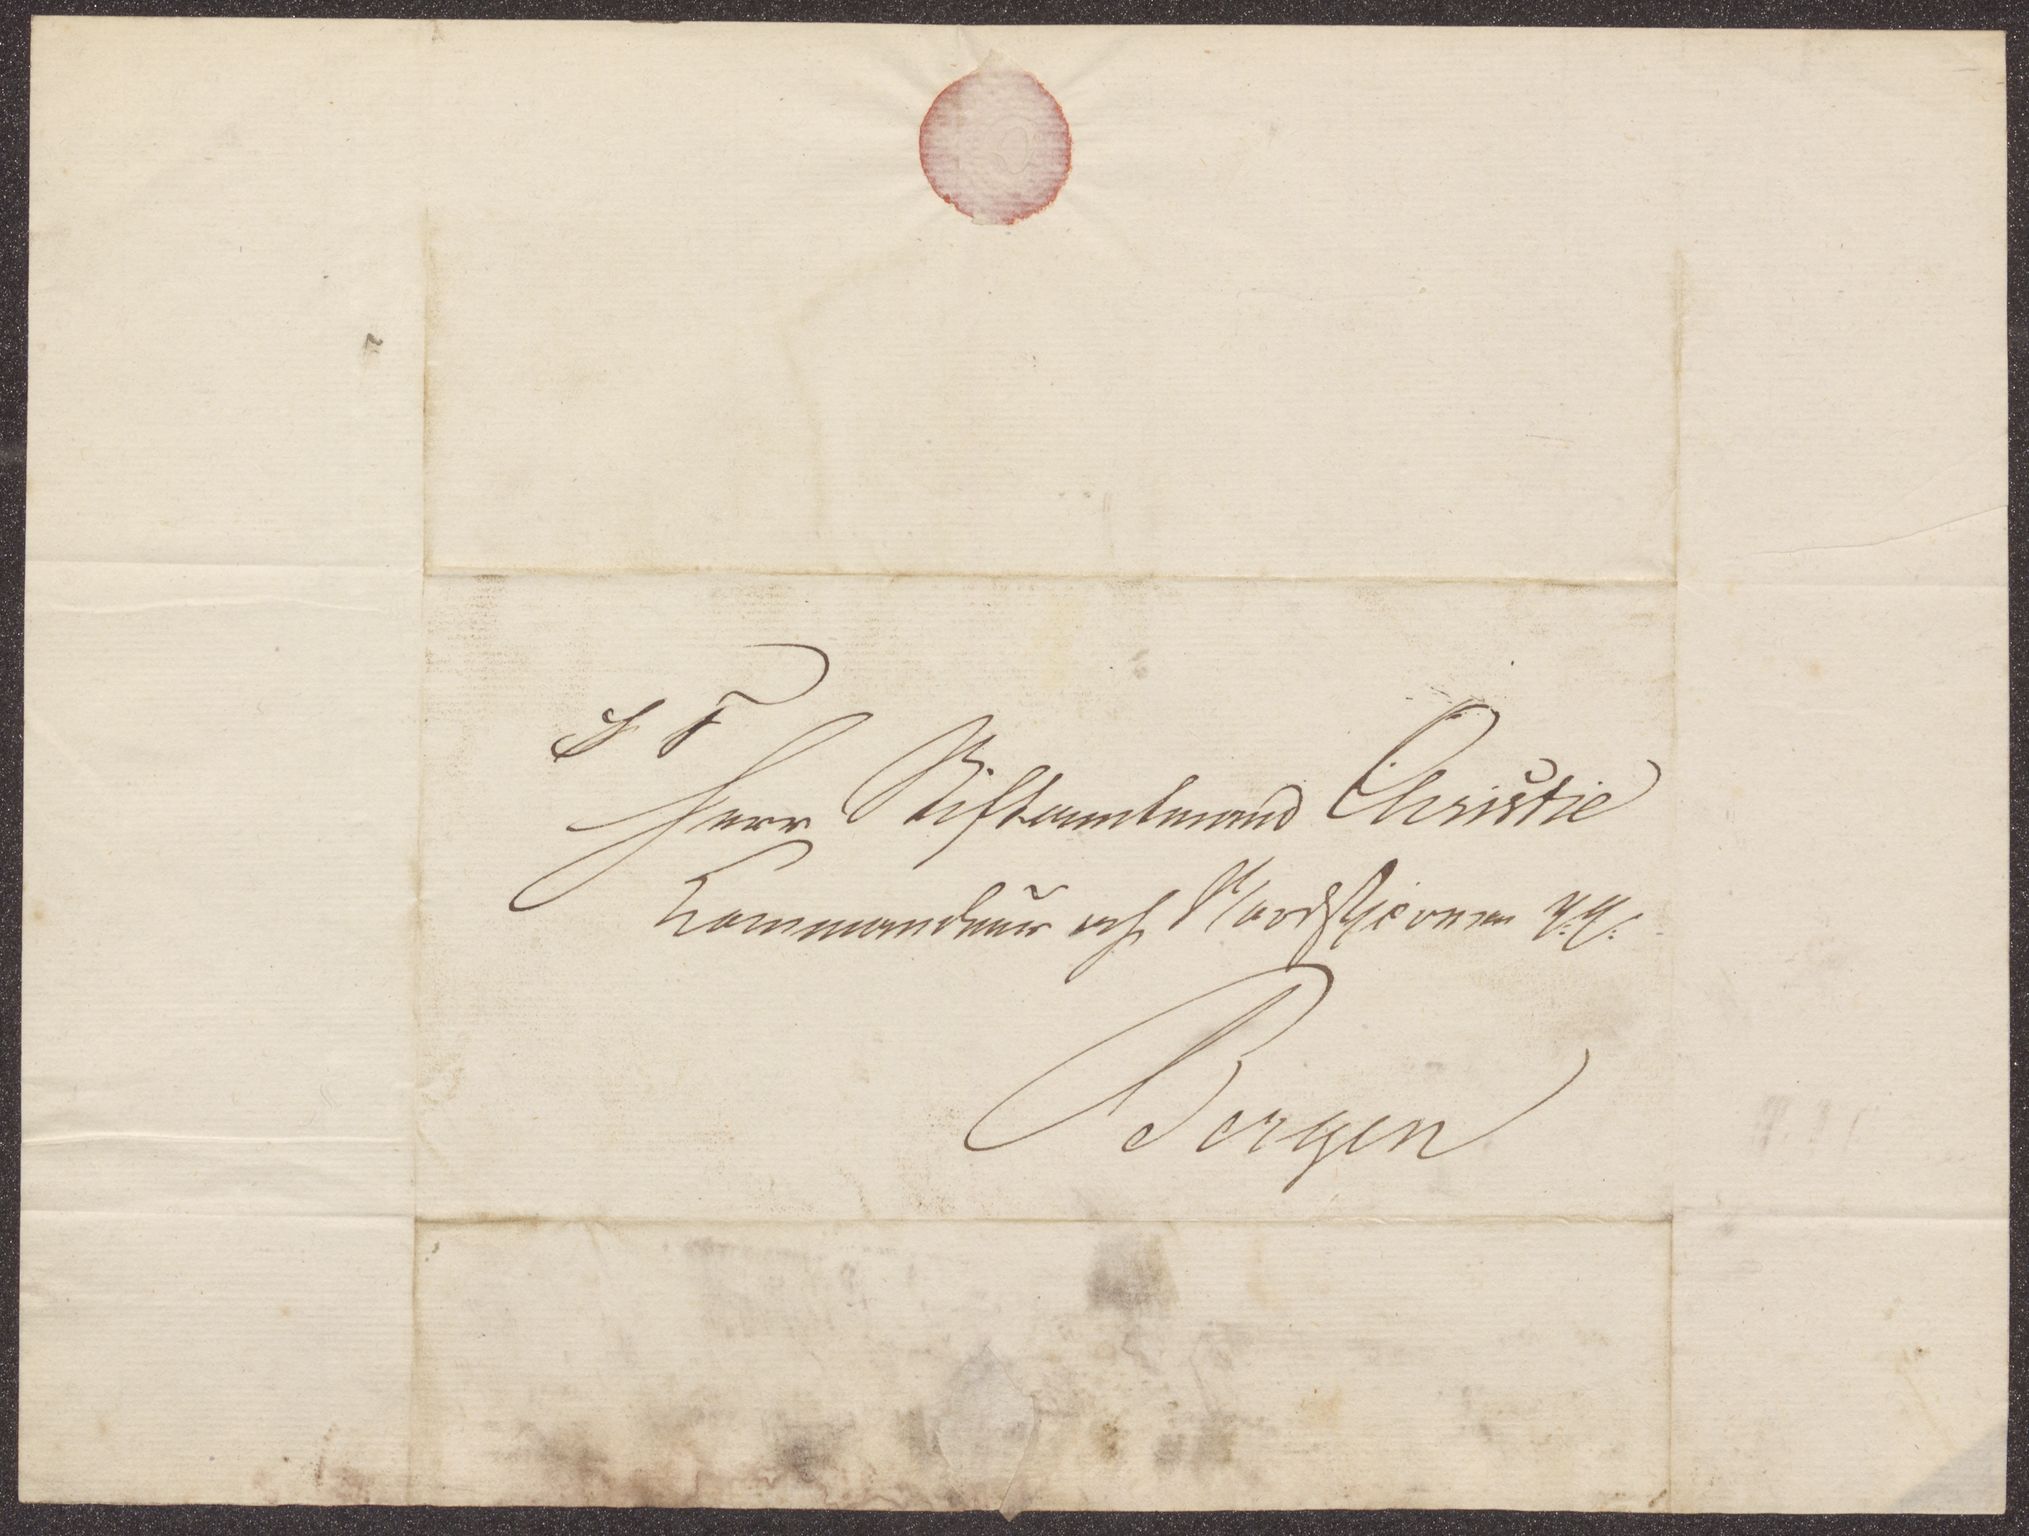 S T
Herr Stiftamtmand Christie
Kommandeur af Nordstjernen
Bergen